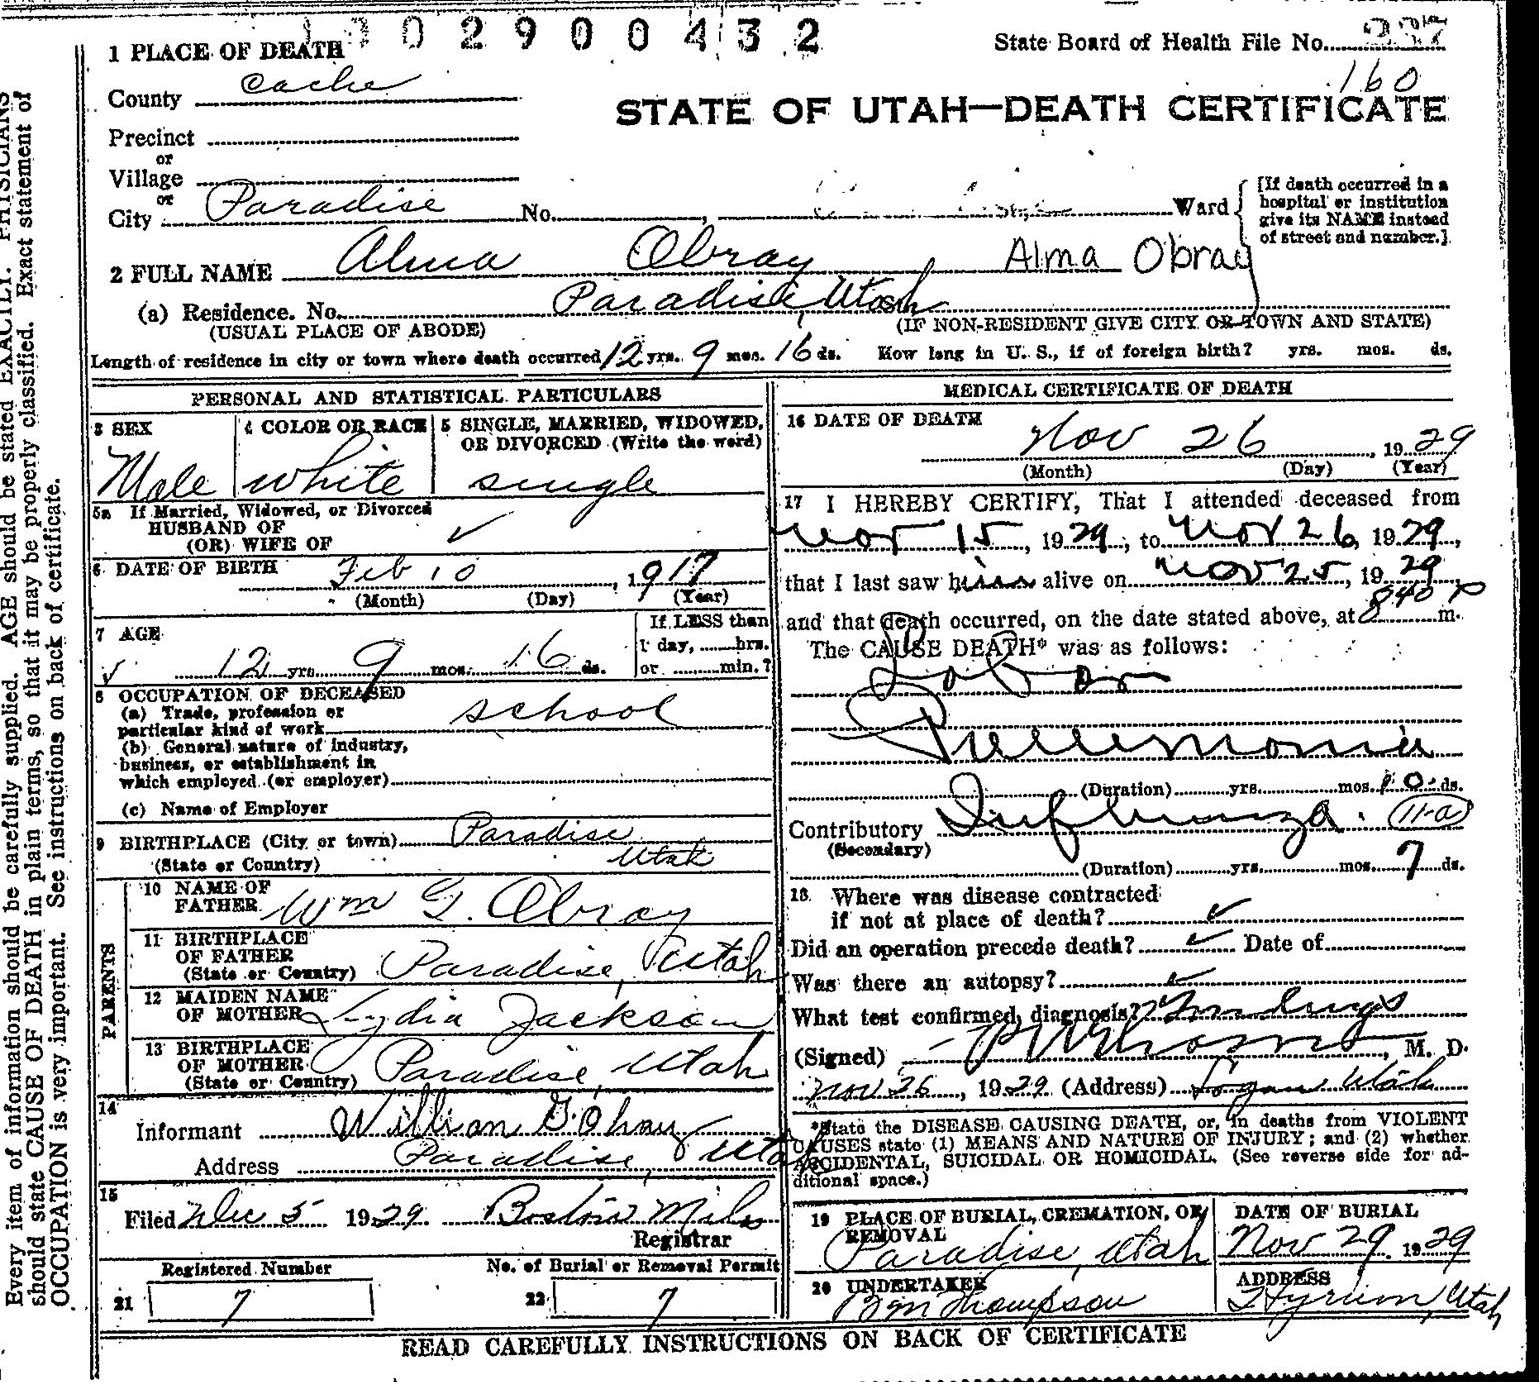 02900432
1 PLACE OF DEATH
State Board of Health File No. 237
160
County Cache
STATE OF UTAH—DEATH CERTIFICATE
Precinct
or
Village
or
City Paradise No. , Ward
[If death occurred in a hospital or institution give its NAME instead of street and number.]
2 FULL NAME Alma Obray Alma Obray
(a) Residence. No. Paradise, Utah
(USUAL PLACE OF ABODE) (IF NON-RESIDENT GIVE CITY OR TOWN AND STATE)
Length of residence in city or town where death occurred 12 yrs. 9 mos. 16 ds. How long in U. S., if of foreign birth? yrs. mos. ds.
PERSONAL AND STATISTICAL PARTICULARS
3 SEX
Male
4 COLOR OR RACE
white
5 SINGLE, MARRIED, WIDOWED, OR DIVORCED (Write the word)
single
5a If Married, Widowed, or Divorced
HUSBAND OF
(OR) WIFE OF
6 DATE OF BIRTH Feb 10, 1917
(Month) (Day) (Year)
7 AGE
12 yrs. 9 mos. 16 ds.
If LESS than
1 day, hrs.
or min.?
8 OCCUPATION OF DECEASED
(a) Trade, profession or
particular kind of work school
(b) General nature of industry,
business, or establishment in
which employed (or employer)
(c) Name of Employer
9 BIRTHPLACE (City or town) Paradise
(State or Country) Utah
PARENTS
10 NAME OF
FATHER Wm G. Obray
11 BIRTHPLACE
OF FATHER
(State or Country) Paradise, Utah
12 MAIDEN NAME
OF MOTHER Lydia Jackson
13 BIRTHPLACE
OF MOTHER
(State or Country) Paradise, Utah
14
Informant William G. Obray
Address Paradise, Utah
15
Filed Dec 5 1929
Registrar
Registered Number
21 7
No. of Burial or Removal Permit
22 7
MEDICAL CERTIFICATE OF DEATH
16 DATE OF DEATH
Nov 26, 1929
(Month) (Day) (Year)
17 I HEREBY CERTIFY, That I attended deceased from
Nov 15, 1929, to Nov 26, 1929,
that I last saw him alive on Nov 25, 1929
and that death occurred, on the date stated above, at 840 P m.
The CAUSE DEATH* was as follows:
Lobar
Pneumonia
(Duration) yrs. mos. 10 ds.
Contributory Influenza. 11-a
(Secondary)
(Duration) yrs. mos. 7 ds.
18 Where was disease contracted
if not at place of death?
Did an operation precede death? Date of
Was there an autopsy?
What test confirmed diagnosis? Findings
(Signed) , M. D.
Nov 26, 1929 (Address) Logan Utah
*State the DISEASE CAUSING DEATH, or, in deaths from VIOLENT
CAUSES state (1) MEANS AND NATURE OF INJURY; and (2) whether
ACCIDENTAL, SUICIDAL OR HOMICIDAL. (See reverse side for ad-
ditional space.)
19 PLACE OF BURIAL, CREMATION, OR
REMOVAL
Paradise, Utah
DATE OF BURIAL
Nov 29. 1929
20 UNDERTAKER
Thompson
ADDRESS
Hyrum, Utah
READ CAREFULLY INSTRUCTIONS ON BACK OF CERTIFICATE
Every item of information should be carefully supplied. AGE should be stated EXACTLY. PHYSICIANS
should state CAUSE OF DEATH in plain terms, so that it may be properly classified. Exact statement of
OCCUPATION is very important. See instructions on back of certificate.